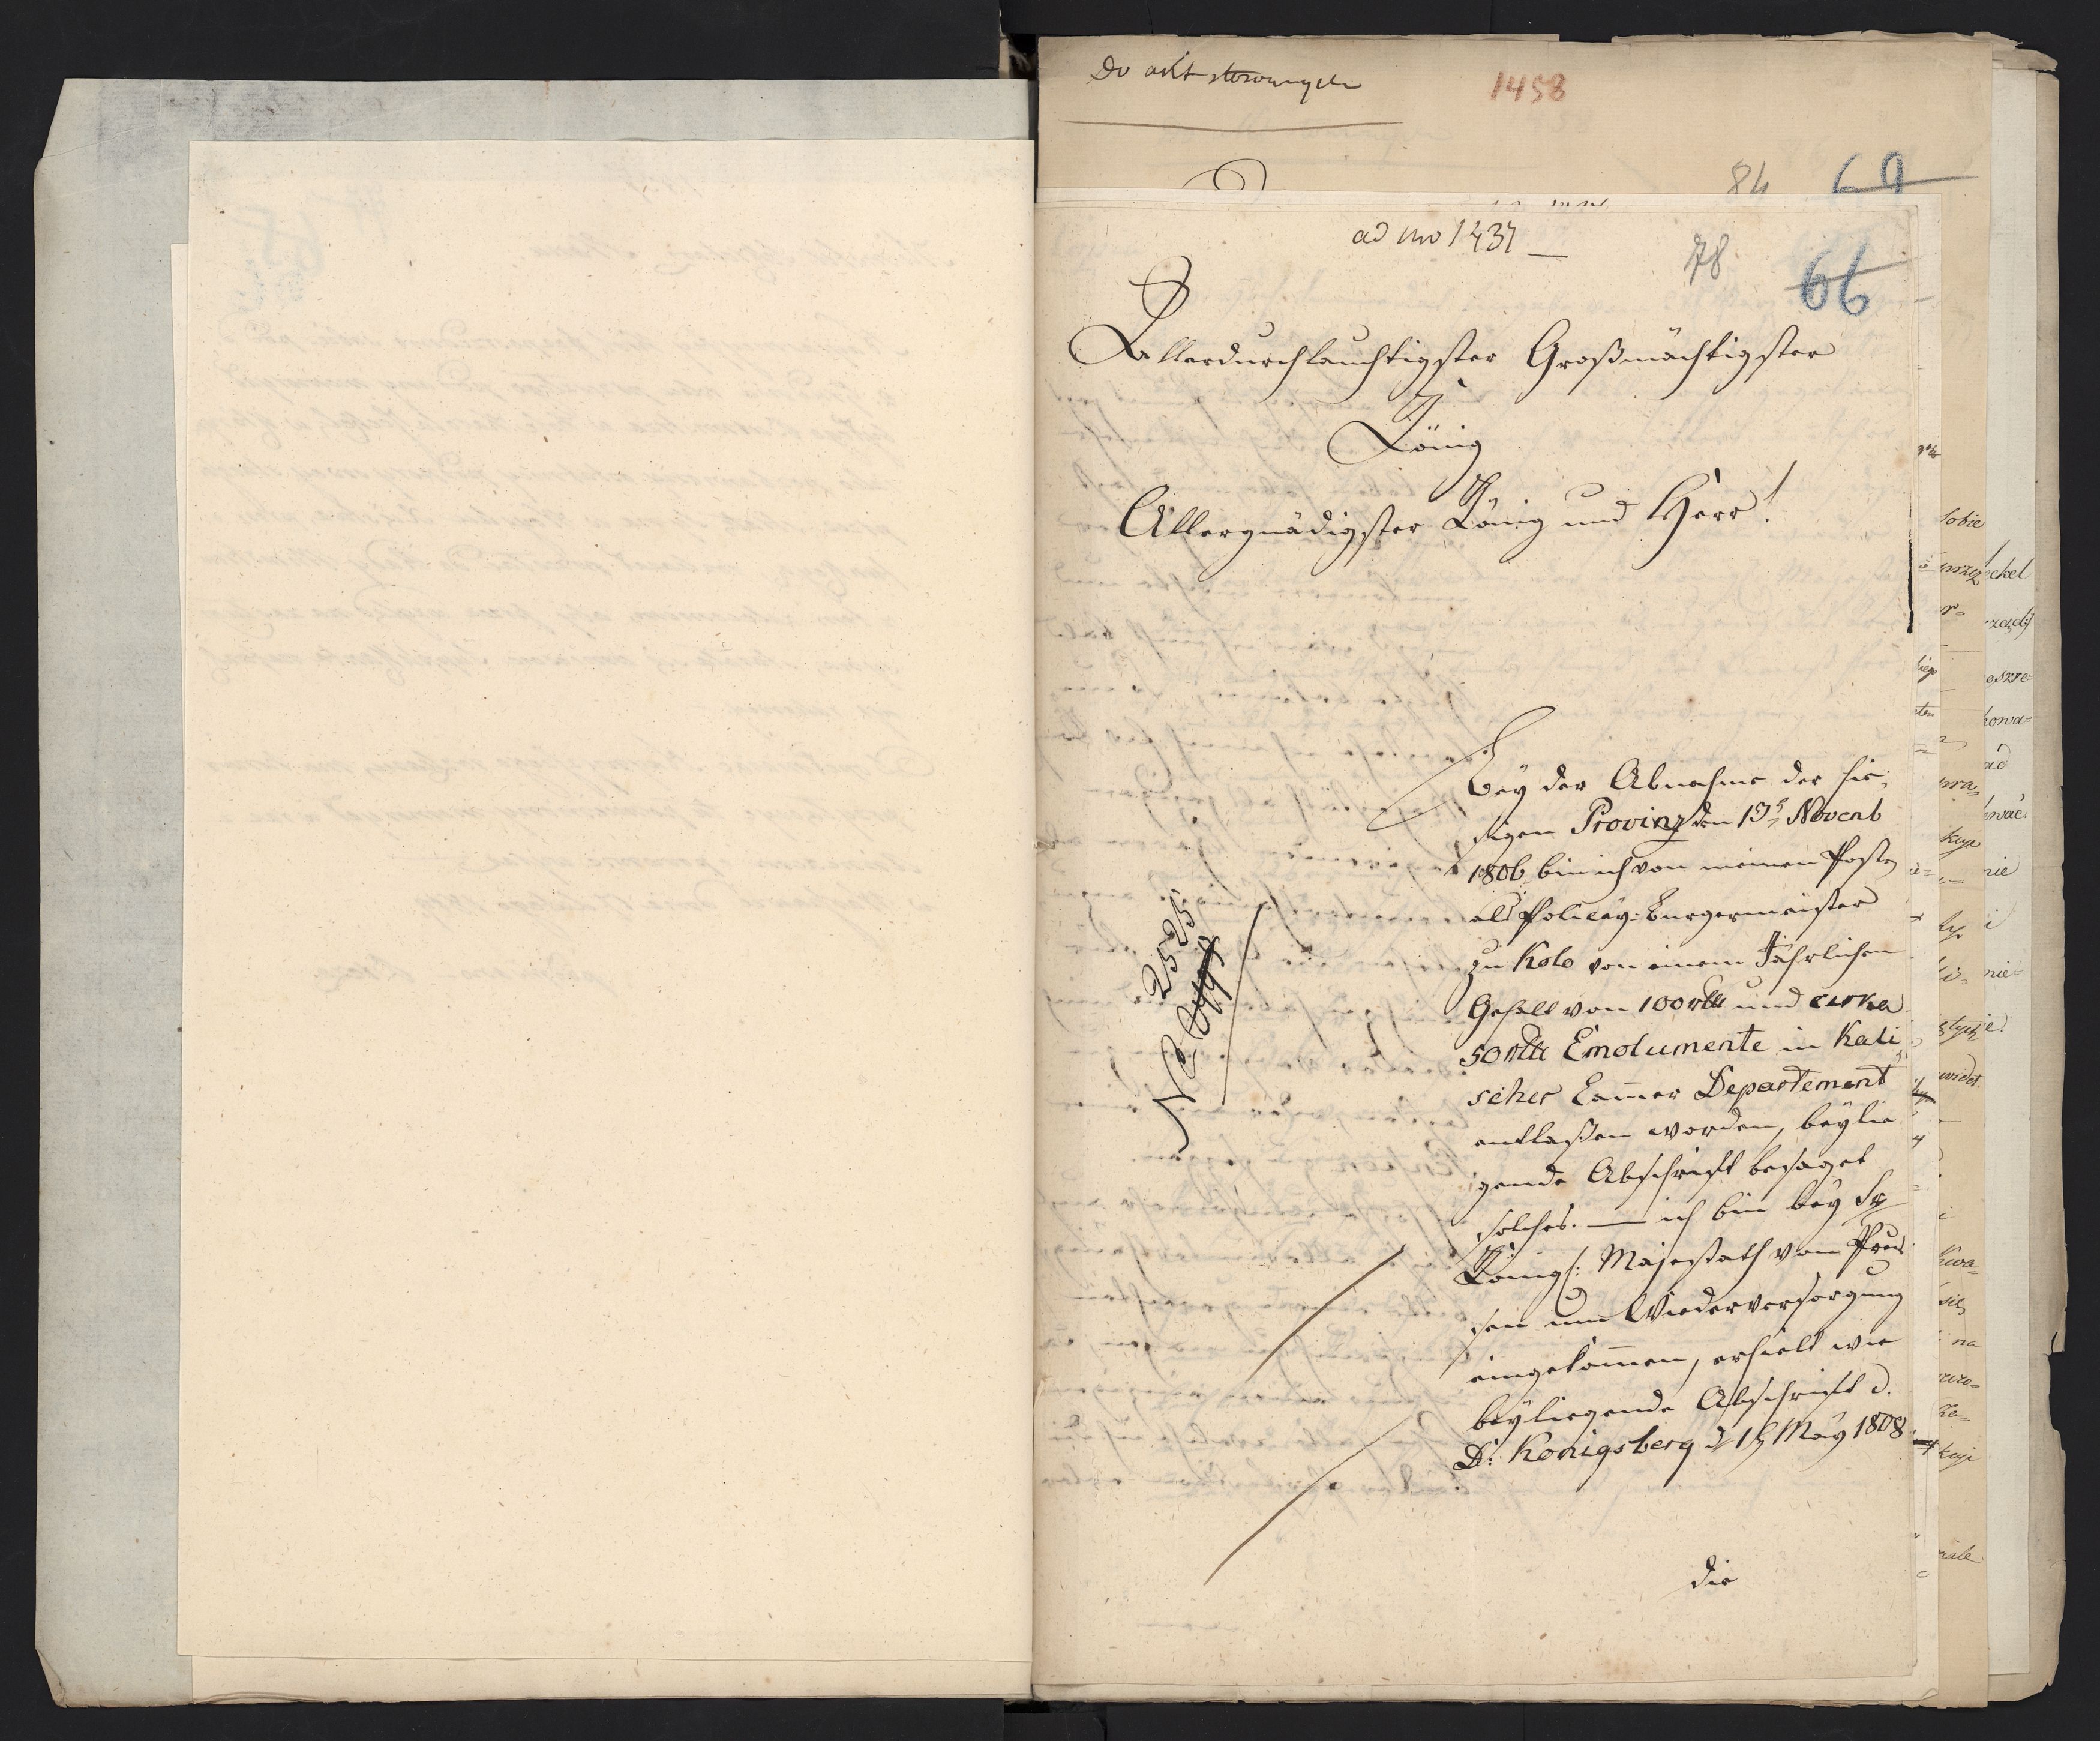 Do akt stosownych
1458
84 69
ad No 1437
78 66
Allerdurchlauchtigster Großmächtigster
König
Allergnädigster König und Herr!
Bey der Abnahme der hie„
sigen Provinz den 15t Novenb
1806 bin ich von meinen Posten
als Policey-Burgermeister
zu Kolo von einem Jährlichen
Gehalt von 100 rtlr und cirka
50 rtlr Emolumente in Kali
scher Cammer Departement
entlaßen worden, beylie
gende Abschrifft besaget
solches. — ich bin bey Sr
Königl: Majestaeth von Preus
sen um Wiederversorgung
eingekommen, erhielt wie
beyliegende Abschrifft d.
D: Konigsberg d 15 May 1808
die
No 2525